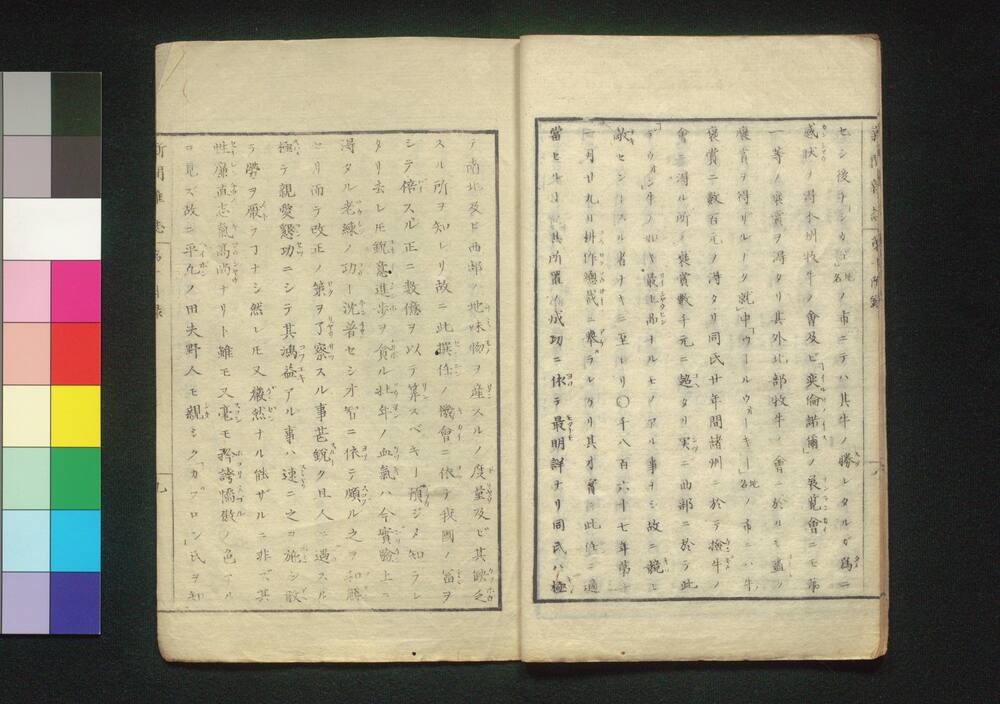 セシ後チシカゴ地名ノ市ニテハ其牛ノ勝レタルガ爲ニ
感狀ノ得本州牧牛ノ會及ビ奕倫諾爾ノ褒覧會ニモ第
一等ノ褒賞ヲ得タリ其外北部牧牛ノ會ニ於ルモ盡ク
褒賞ヲ得リルータ就中「ウールウォーキー」地名ノ市ニハ牛ノ
褒賞ニ數百元ノ得タリ同氏廿年間諸州ニ於テ撿牛ノ
會ニ得ル所ノ褒賞數千元ニ超タリ実ニ西部ニ於テ此
牛ノ如キ最上高ナルモノアル事ナシ故ニ競モ
敵セントスル者ナキニ至レリ〇千八百六十七年第十
一月廿九日耕作總裁ニ擧ゲラレタリ其才實ニ此任ニ適
當セリ其所置ノ成功ニ依テ最明詳ナリ同氏ハ極
テ南北及ビ西部ノ地味物ヲ産スルノ度量及ビ其缺乏
スル所ヲ知レリ故ニ此撰任ノ機會ニ依テ我國ノ冨ヲ
シテ倍スル正ニ數億ヲ以テ算スベキー預ジメ知ラレ
タリ去レ𪜈銳意進歩ヲ貪ル壯年ノ血氣ハ今實驗上ニ
得タル老練ノ功ー沈着セシ才智ニ依テ頗ル之ヲ和解
セリ而テ改正ノ策ヲ了察スル事甚銳ク且人ニ遇スル
極テ親愛懇功ニシテ其鴻益アル事ハ速ニ之ヲ施シ敢
テ勞ヲ厭ヲ丁ナシ然レ𪜈又嚴然ナル能ザルニ非ズ其
性廉直志氣高尚ナリト雖モ又毫モ矜誇憍傲ノ色アル
ヿ見ズ故ニ平凡ノ田夫野人モ親シクカプロン氏ヲ知
新聞雜誌
九